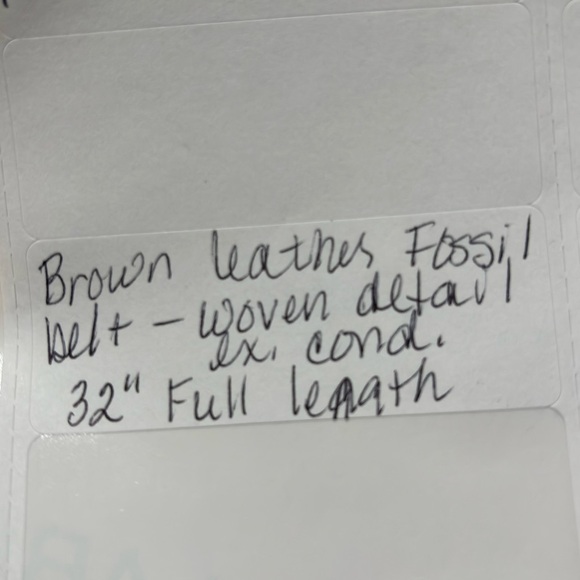 Brown leather Fossil
belt - woven detail
ex. cond.
32" Full length